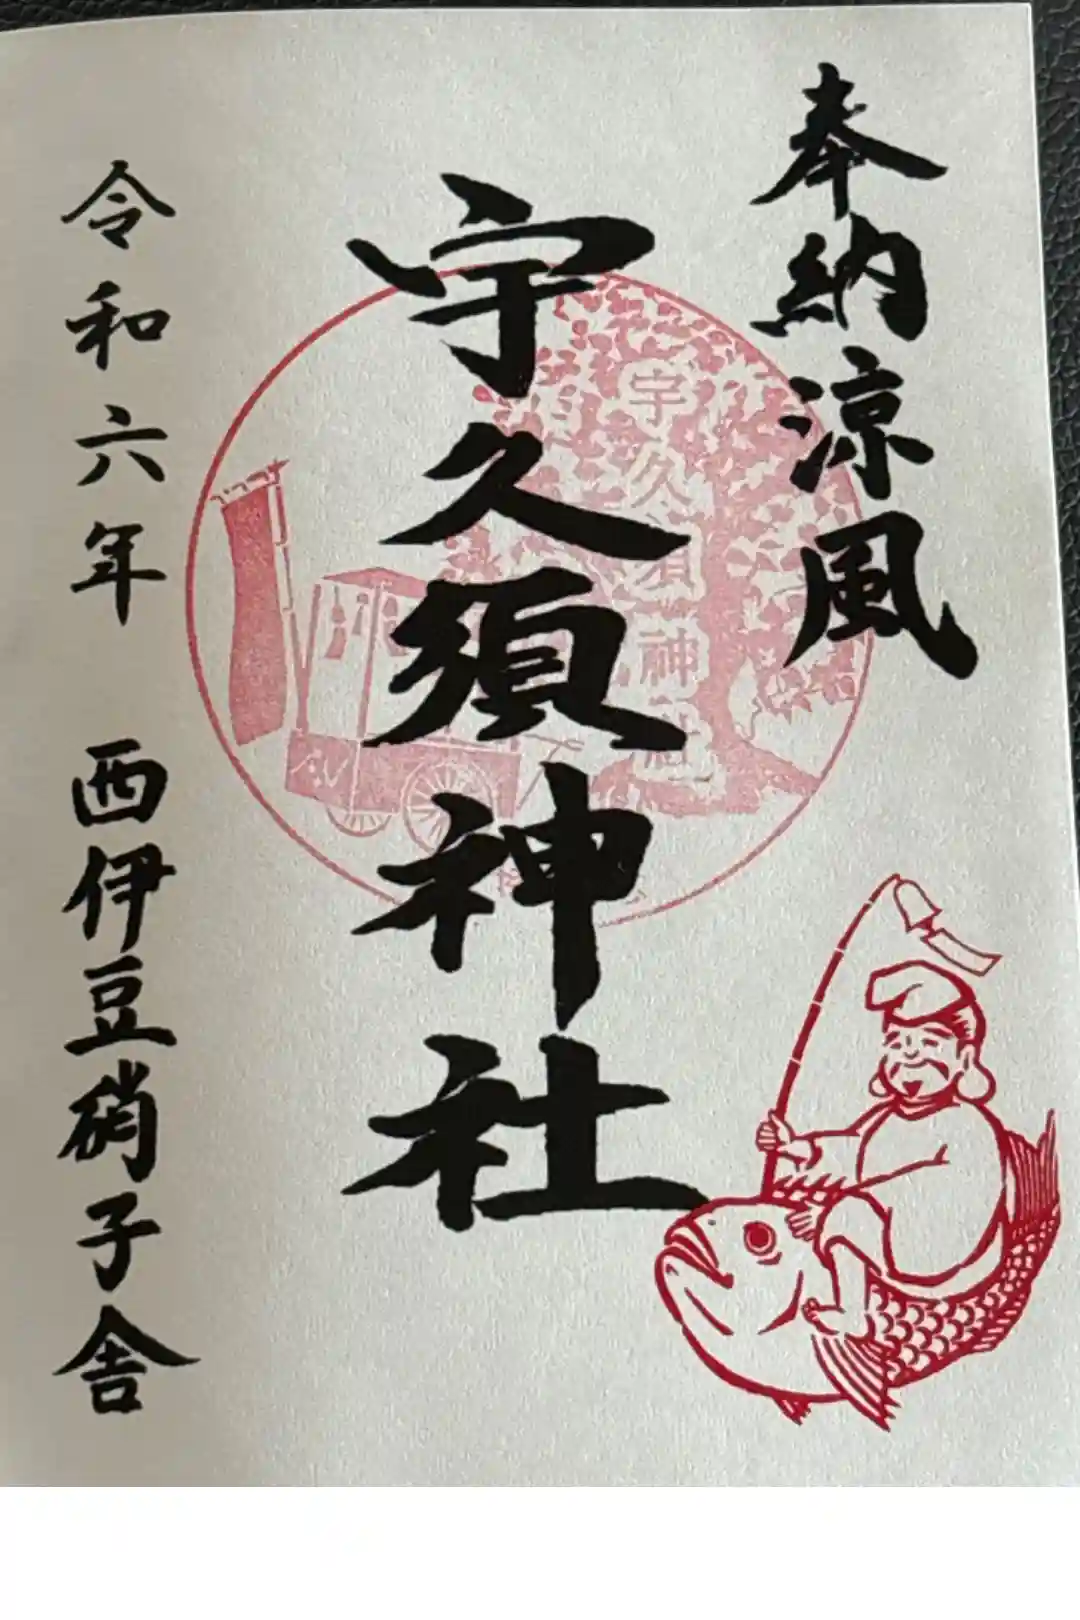 奉納涼風
宇久須神社
宇久須神社
令和六年 西伊豆硝子舎